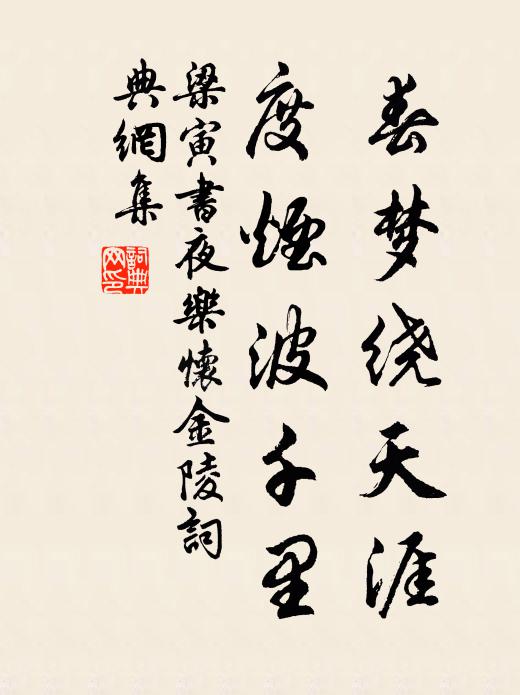 春梦绕天涯
度煙波千里
梁寅書夜樂懷金陵詞
典網集
詞典
网印